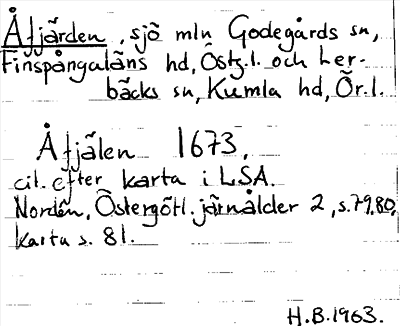 Åfjärden, sjö mln Godegårds sn,
Finspångaläns hd, Östg.l. och Ler-
bäcks sn, Kumla hd, Ör.l.
Åfjälen 1673,
cit. efter karta i LSA.
Nordén, Östergötl. järnålder 2, s. 79, 80,
karta s. 81.
H.B. 1963.